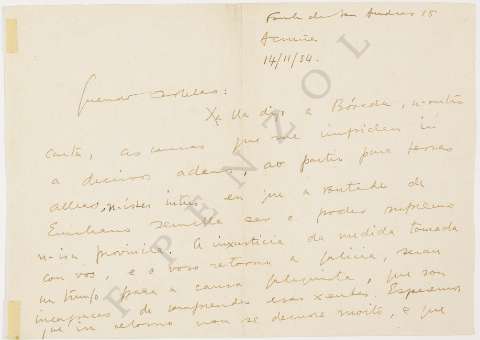 Fonte de San Andres 15
Acruña
14/11/34.
Querido :
Xa lle digo a Bóveda, n-outra
carta, as causas que me impiden ir
a decirvos adeus, ao partir para terras
alleas, n-istes intres en que a vontade de
Emiliano semella ser o poder supremo
n-isa provincia. A inxusticia da medida tomada
con vos, e o voso retorno a Galicia, serán
un trunfo para a causa galeguista, que son
incapaces de comprender esas xentes. Esperemos
que iste retorno non se demore moito, e que
F. PENZOL